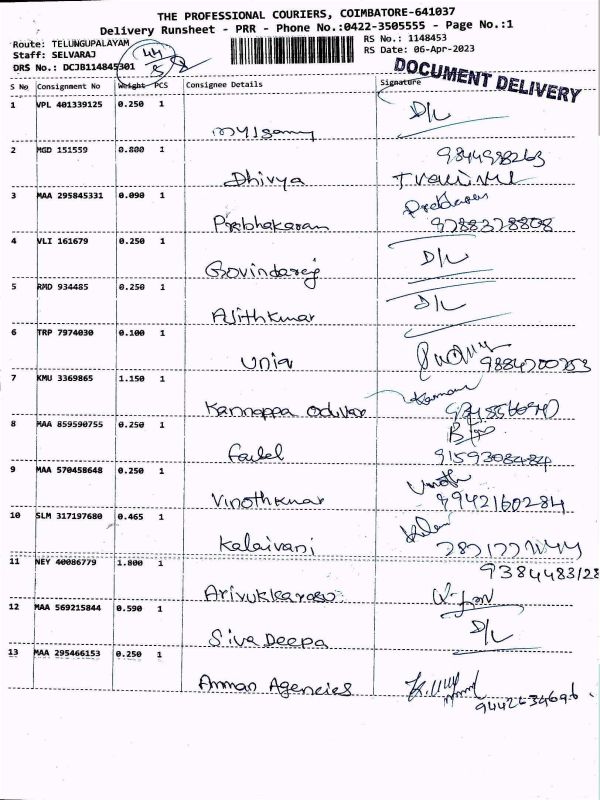 THE PROFESSIONAL COURIERS, COIMBATORE-641037
Delivery Runsheet - PRR - Phone No.:0422-3505555 - Page No.:1
Route: TELUNGUPALAYAM
RS No.: 1148453
Staff: SELVARAJ
RS Date: 06-Apr-2023
DRS No.: DCJB114845301
DOCUMENT DELIVERY
S No Consignment No Weight PCS Consignee Details Signature
1 VPL 401339125 0.250 1
D/L
2 MGD 151559 0.800 1
Dhivya
3 MAA 295845331 0.090 1
Prabhakaran 9288328808
4 VLI 161679 0.250 1
Govindaraj D/L
5 RMD 934485 0.250 1
Ajithkumar D/L
6 TRP 7974030 0.100 1
9884200253
7 KMU 3369865 1.150 1
Kannappa
8 MAA 859590755 0.250 1
9159308484
9 MAA 570458648 0.250 1
Vinoth
Vinothkumar 9942160284
10 SLM 317197680 0.465 1
Kalaivani
11 NEY 40086779 1.800 1
Arivukkarasu
12 MAA 569215844 0.590 1
Siva Deepa D/L
13 MAA 295466153 0.250 1
Amman Agencies